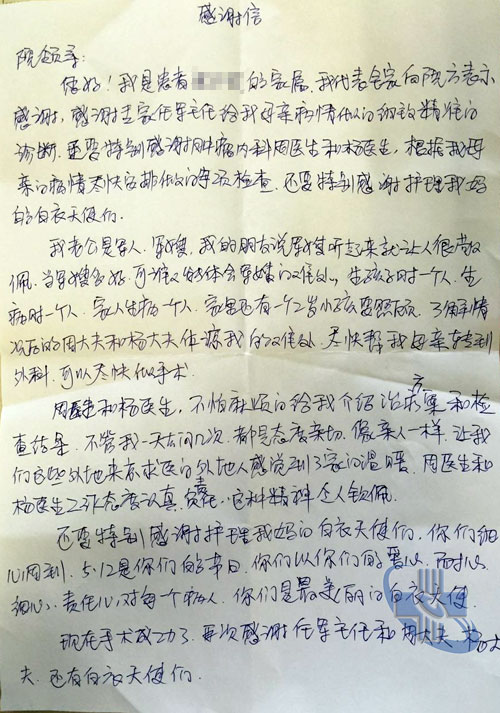 感谢信
院领导:
您好!我是患者 的家属,我代表全家向院方表示
感谢,感谢李家任军主任给我母亲病情做的细致精准的
诊断,还要特别感谢肿瘤内科周医生和杨医生,根据我母
亲的病情尽快安排做的每项检查,还要特别感谢护理我妈
的白衣天使们.
我老公是军人,军嫂,我的朋友说军嫂听起来就让人很敬
佩,当军嫂多好,可谁又能体会军嫂的难处,生孩子时一个人,生
病时一个人,家人生病一个人,家里还有一个2岁小孩要照顾,了解到情
况后的周大夫和杨大夫体谅我的难处,尽快帮我母亲转到
外科,可以尽快做手术.
周医生和杨医生,不怕麻烦的给我介绍治疗方案和检
查结果,不管我一天去问几次,都是态度亲切,像亲人一样,让我
们这些外地来京求医的外地人感觉到了家的温暖,周医生和
杨医生工作态度认真,负责,它种精神令人钦佩.
还要特别感谢护理我妈的白衣天使们,你们细
心周到,5.12是你们的节日,你们以你们的爱心,耐心,
细心,责任心,对每一个病人,你们是最美丽的白衣天使.
现在手术成功了,再次感谢任军主任和周大夫,杨大
夫,还有白衣天使们.